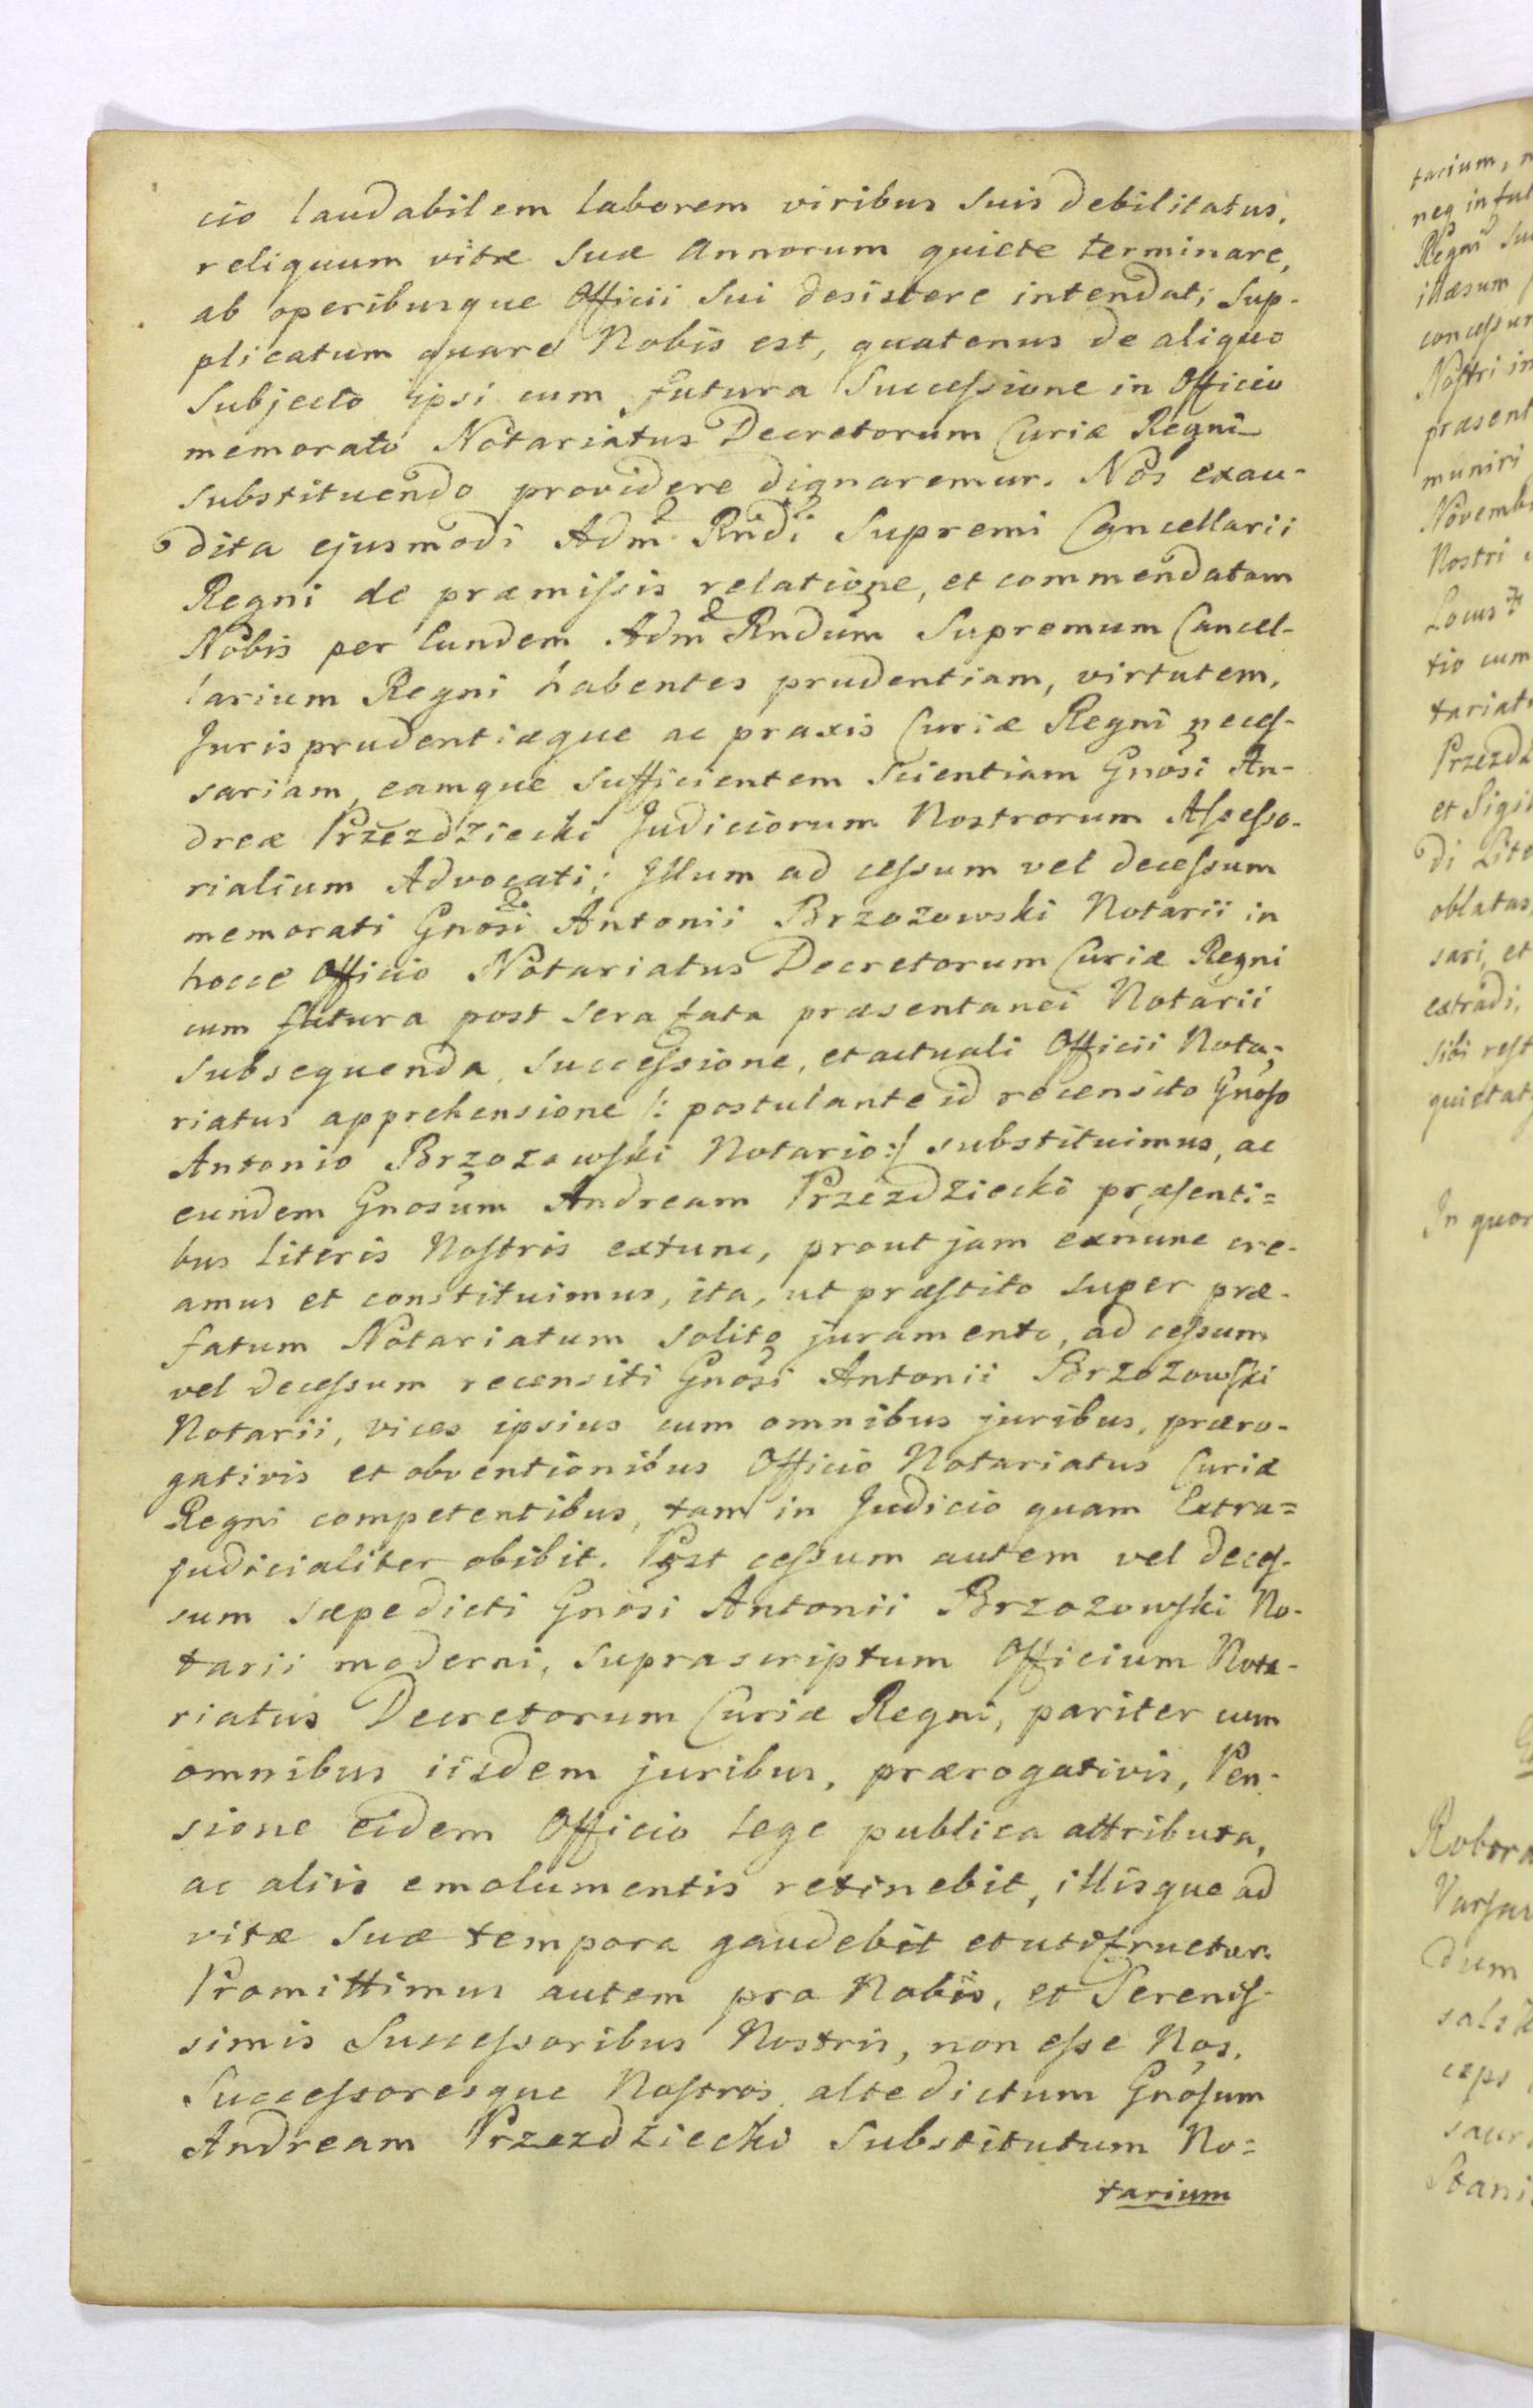 cio laudabilem laborem viribus suis debilitatus,
reliquum vitæ suæ Annorum quiete terminare,
ab operibusque Officii sui desistere intendat; Sup-
plicatum quare Nobis est, quatenus de aliquo
Subjecto ipsi cum futura Successione in Officio
memorato Notariatus Decretorum Curiæ Regni
substituendo providere dignaremur. Nos exau-
dita ejusmodi Adm Rndi Supremi Cancellarii
Regni de præmissis relatione, et commendatam
Nobis per Eundem Adm Rndum Supremum Cancel-
larium Regni habentes prudentiam, virtutem,
Jurisprudentiæque ac praxis Curiæ Regni neces-
sariam, eamque sufficientem Scientiam Gnosi An-
dreæ Przezdziecki Judiciorum Nostrorum Assesso-
rialium Advocati; Illum ad cessum vel decessum
memorati Gnosi Antonii Brzozowski Notarii in
hocce Officio Notariatus Decretorum Curiæ Regni
cum futura post sera fata præsentanei Notarii
subsequenda Successione, et actuali Officii Nota-
riatus apprehensione /: postulante id recensito Gnoso
Antonio Brzozowski Notario :/ substituimus, ac
eundem Gnosum Andream Przezdziecki præsenti=
bus Literis Nostris extunc, prout jam exnunc cre-
amus et constituimus, ita, ut præstito super præ-
fatum Notariatum solito juramento, ad cessum
vel decessum recensiti Gnosi Antonii Brzozowski
Notarii, vices ipsius cum omnibus juribus, præro-
gativis et obventionibus Officio Notariatus Curiæ
Regni competentibus, tam in Judicio quam Extra=
judicialiter obibit. Post cessum autem vel deces-
sum sæpedicti Gnosi Antonii Brzozowski No-
tarii moderni, suprascriptum Officium Nota-
riatus Decretorum Curiæ Regni, pariter cum
omnibus iisdem juribus, prærogativis, Pen-
sione eidem Officio Lege publica attributa,
ac aliis emolumentis retinebit, illisque ad
vitæ suæ tempora gaudebit et utifruetur.
Promittimus autem pro Nobis, et Serenis-
simis Successoribus Nostris, non esse Nos,
Successoresque Nostros altedictum Gnosum
Andream Przezdziecki Substitutum No=
tarium
tarium,
Regni
illæsum
Nostri in
præsent
muniri
Novemb
Nostri
Locus
tio cum
tariat
Przezd
et Sigi
oblatas,
sari, et
extradi,
sibi rest
quietat
In quor
Robora
Varsav
dum
Stani